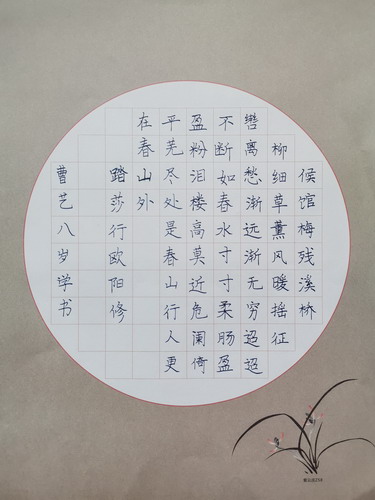 候馆梅残溪桥
柳细草薰风暖摇征
辔离愁渐远渐无穷迢迢
不断如春水寸寸柔肠盈
盈粉泪楼高莫近危阑倚
平芜尽处是春山行人更
在春山外
踏莎行欧阳修
曹艺八岁学书